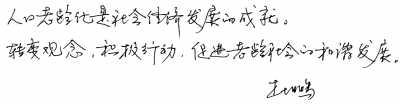 人口老龄化是社会经济发展的成就。
转变观念，积极行动，促进老龄社会的和谐发展。